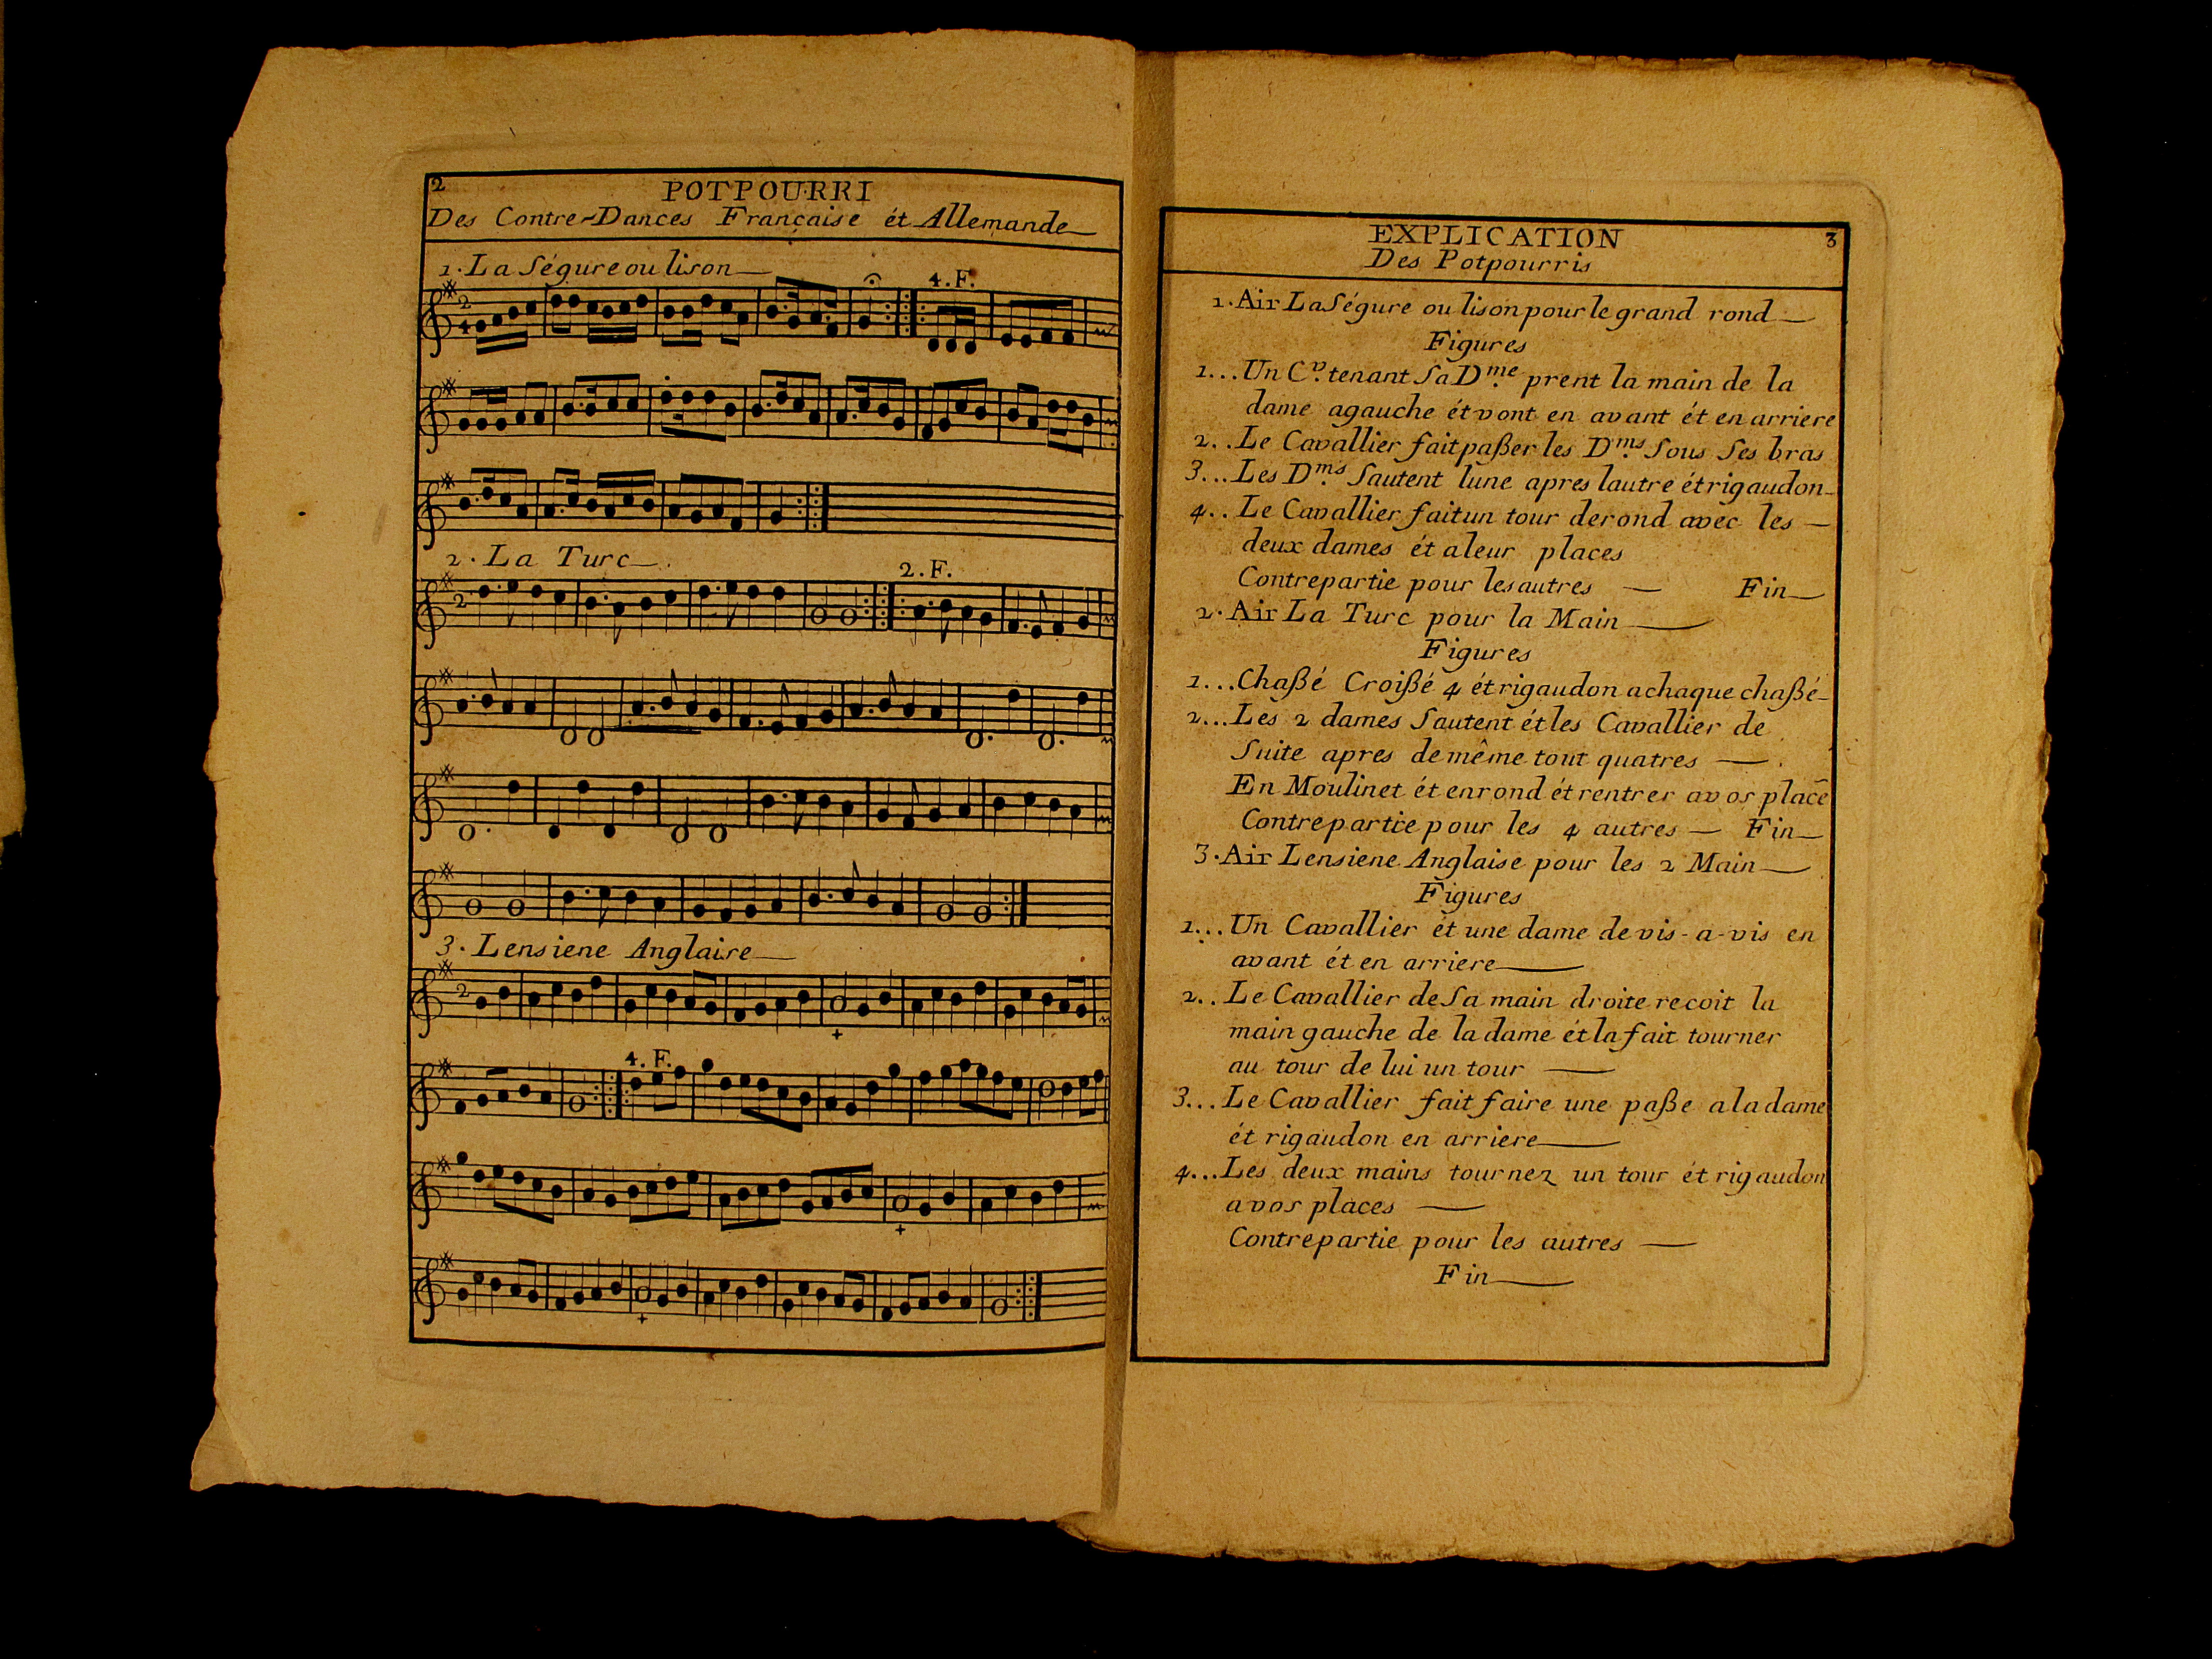 2
POTPOURRI
Des Contre-Dances Française ét Allemande
1. La Ségure ou lison
2
4
4. F.
2. La Turc
2
2. F.
3. Lensiene Anglaise
2
4. F.
EXPLICATION
3
Des Potpourris
1. Air La Ségure ou lison pour le grand rond
Figures
1... Un Cv. tenant Sa Dme. prent la main de la
dame agauche ét vont en avant ét en arriere
2.. Le Cavallier fait paßer les Dms. Sous Ses bras
3... Les Dms. Sautent lune apres lautre ét rigaudon
4.. Le Cavallier fait un tour de rond avec les
deux dames ét a leur places
Contrepartie pour les autres Fin
2. Air La Turc pour la Main
Figures
1... Chaßé Croißé 4 ét rigaudon a chaque chaßé
2... Les 2 dames Sautent ét les Cavallier de
Suite apres de même tout quatres
En Moulinet ét en rond ét rentrer a vos place
Contrepartie pour les 4 autres Fin
3. Air Lensiene Anglaise pour les 2 Main
Figures
1... Un Cavallier ét une dame de vis-a-vis en
avant ét en arriere
2.. Le Cavallier de Sa main droite recoit la
main gauche de la dame ét la fait tourner
au tour de lui un tour
3... Le Cavallier fait faire une paße a la dame
ét rigaudon en arriere
4... Les deux mains tournez un tour ét rigaudon
a vos places
Contrepartie pour les autres
Fin